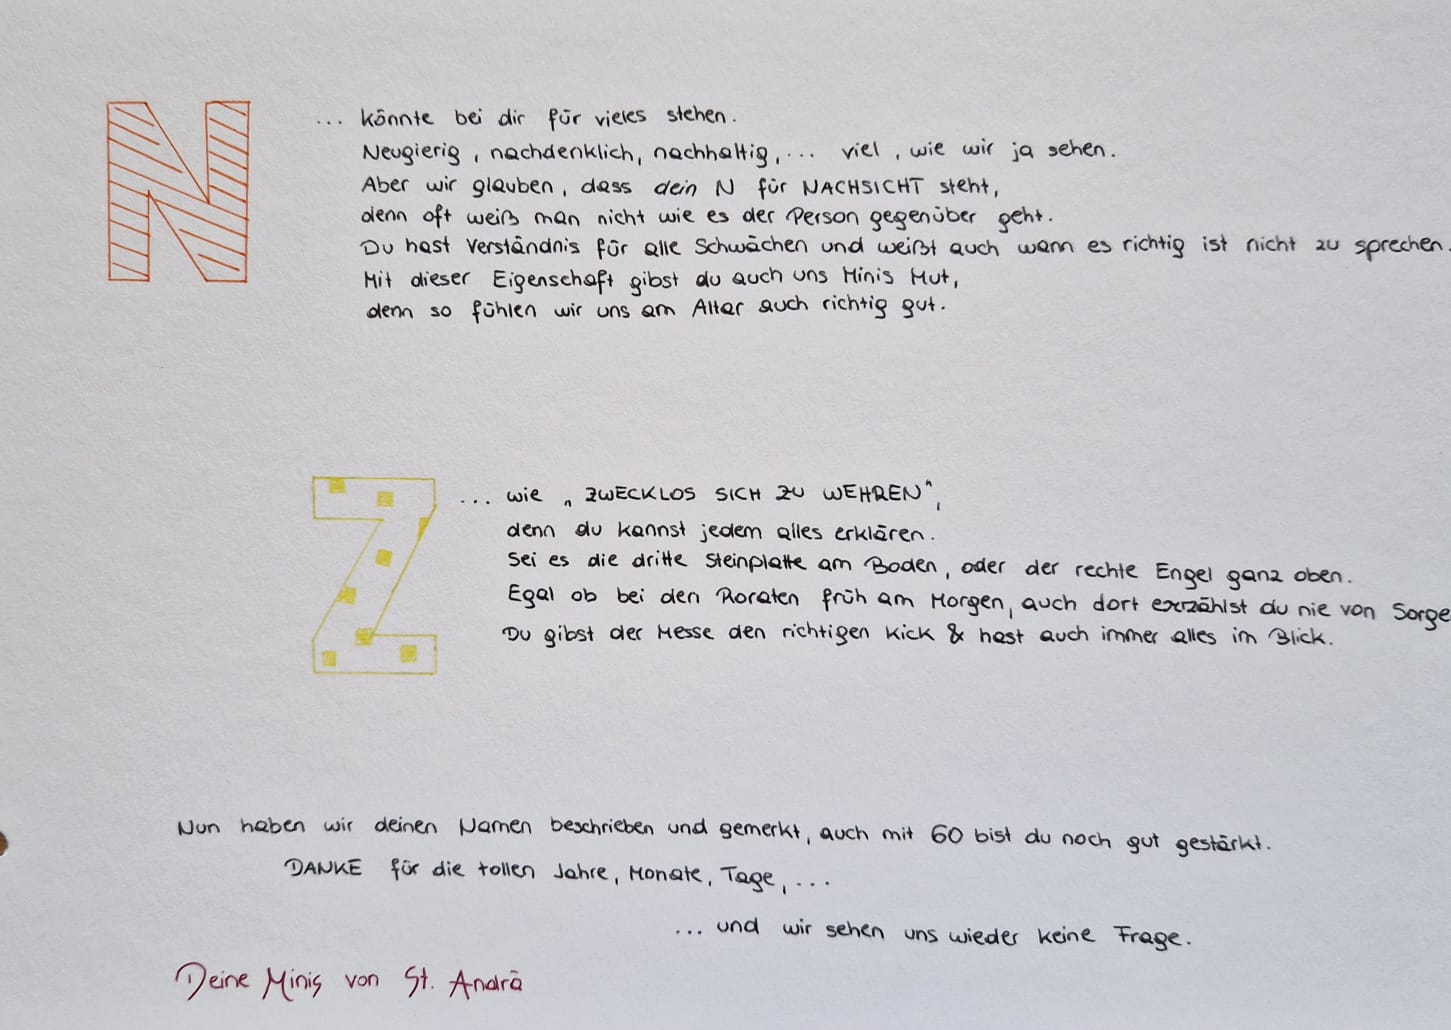 N ... könnte bei dir für vieles stehen.
Neugierig, nachdenklich, nachhaltig,... viel, wie wir ja sehen.
Aber wir glauben, dass dein N für NACHSICHT steht,
denn oft weiß man nicht wie es der Person gegenüber geht.
Du hast Verständnis für alle Schwächen und weißt auch wann es richtig ist nicht zu sprechen.
Mit dieser Eigenschaft gibst du auch uns Minis Mut,
denn so fühlen wir uns am Altar auch richtig gut.
Z ... wie „ZWECKLOS SICH ZU WEHREN",
denn du kannst jedem alles erklären.
Sei es die dritte Steinplatte am Boden, oder der rechte Engel ganz oben.
Egal ob bei den Roraten früh am Morgen, auch dort erzählst du nie von Sorge
Du gibst der Messe den richtigen Kick & hast auch immer alles im Blick.
Nun haben wir deinen Namen beschrieben und gemerkt, auch mit 60 bist du noch gut gestärkt.
DANKE für die tollen Jahre, Monate, Tage,...
... und wir sehen uns wieder keine Frage.
Deine Minis von St. Andrä